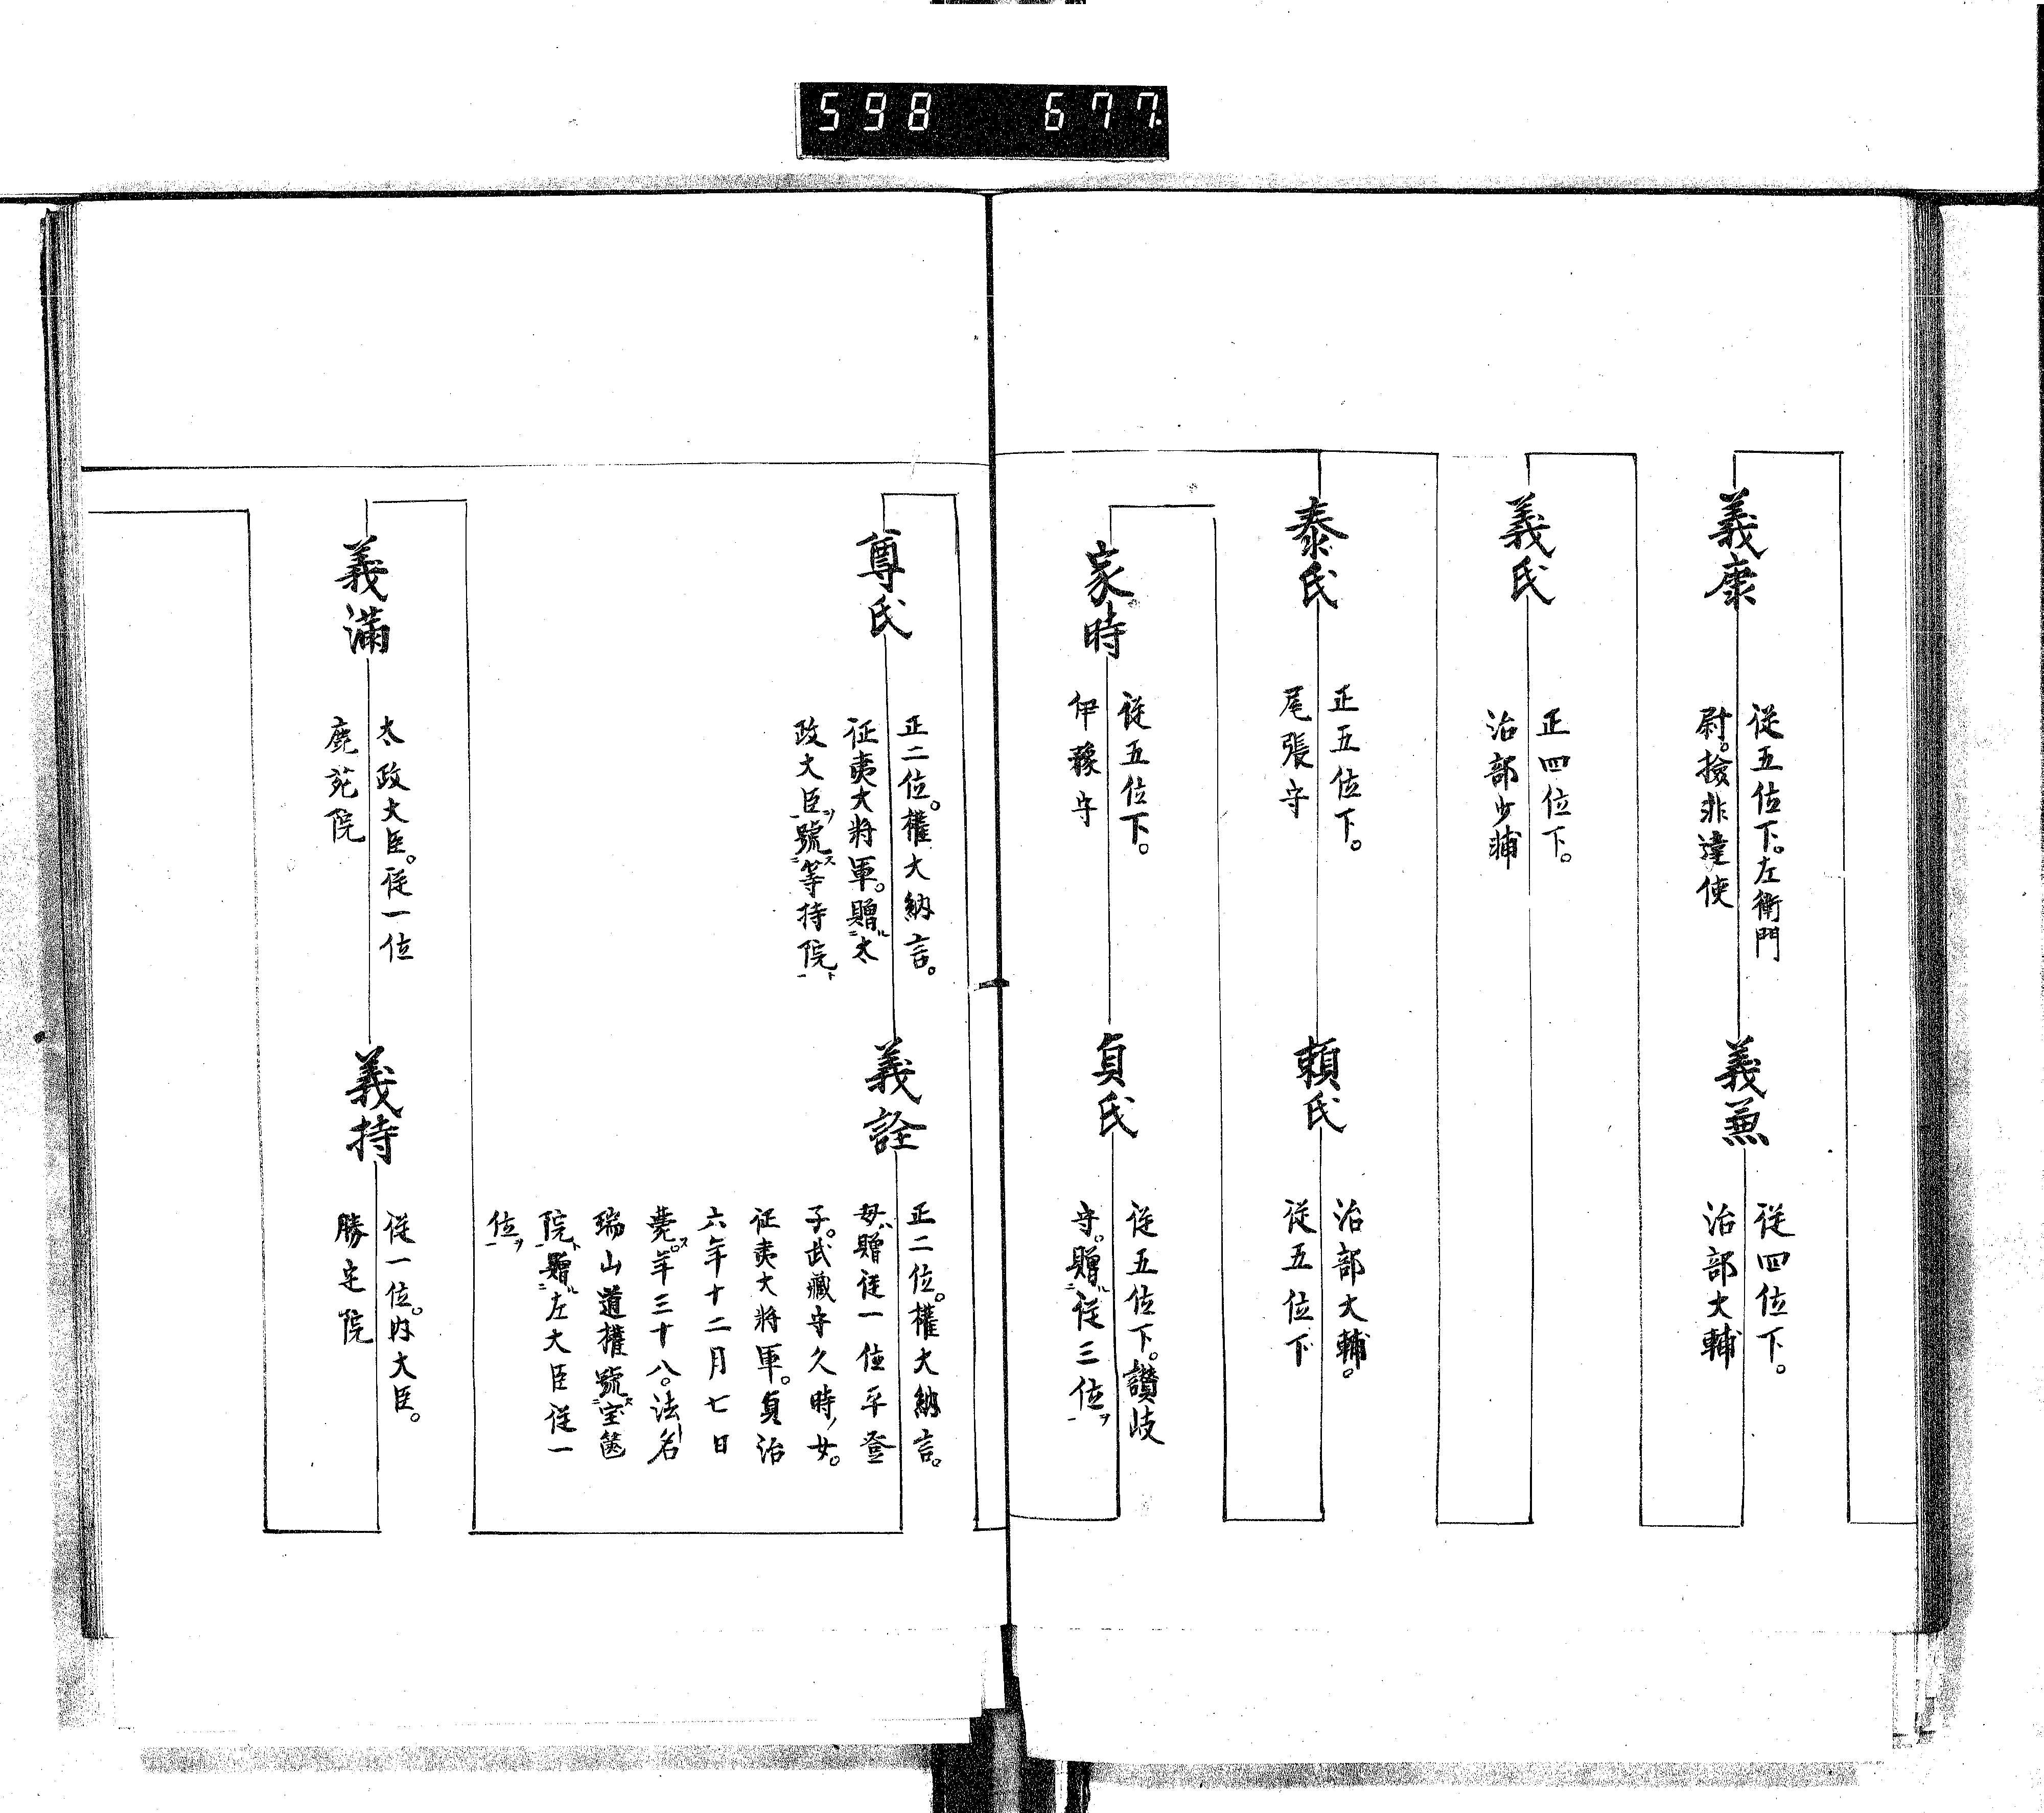 598 677
義康
従五位下。左衛門
尉。撿非違使
義兼
従四位下。
治部大輔
義氏
正四位下。
治部少輔
泰氏
正五位下。
尾張守
頼氏
治部大輔。
従五位下
家時
従五位下。
伊豫守
貞氏
従五位下。讃岐
守。贈ル二従三位ヲ一
尊氏
正二位。權大納言。
征夷大将軍。贈ル二太
政大臣ヲ一號ス二等持院ト一
義詮
正二位。權大納言。
母ハ贈従一位平登
子。武藏守久時ノ女。
征夷大将軍。貞治
六年十二月七日
薨ス。年三十八。法名
瑞山道權號ス二宝篋
院ト一贈ル二左大臣従一
位ヲ一
義満
太政大臣。従一位
鹿苑院
義持
従一位。内大臣。
勝定院